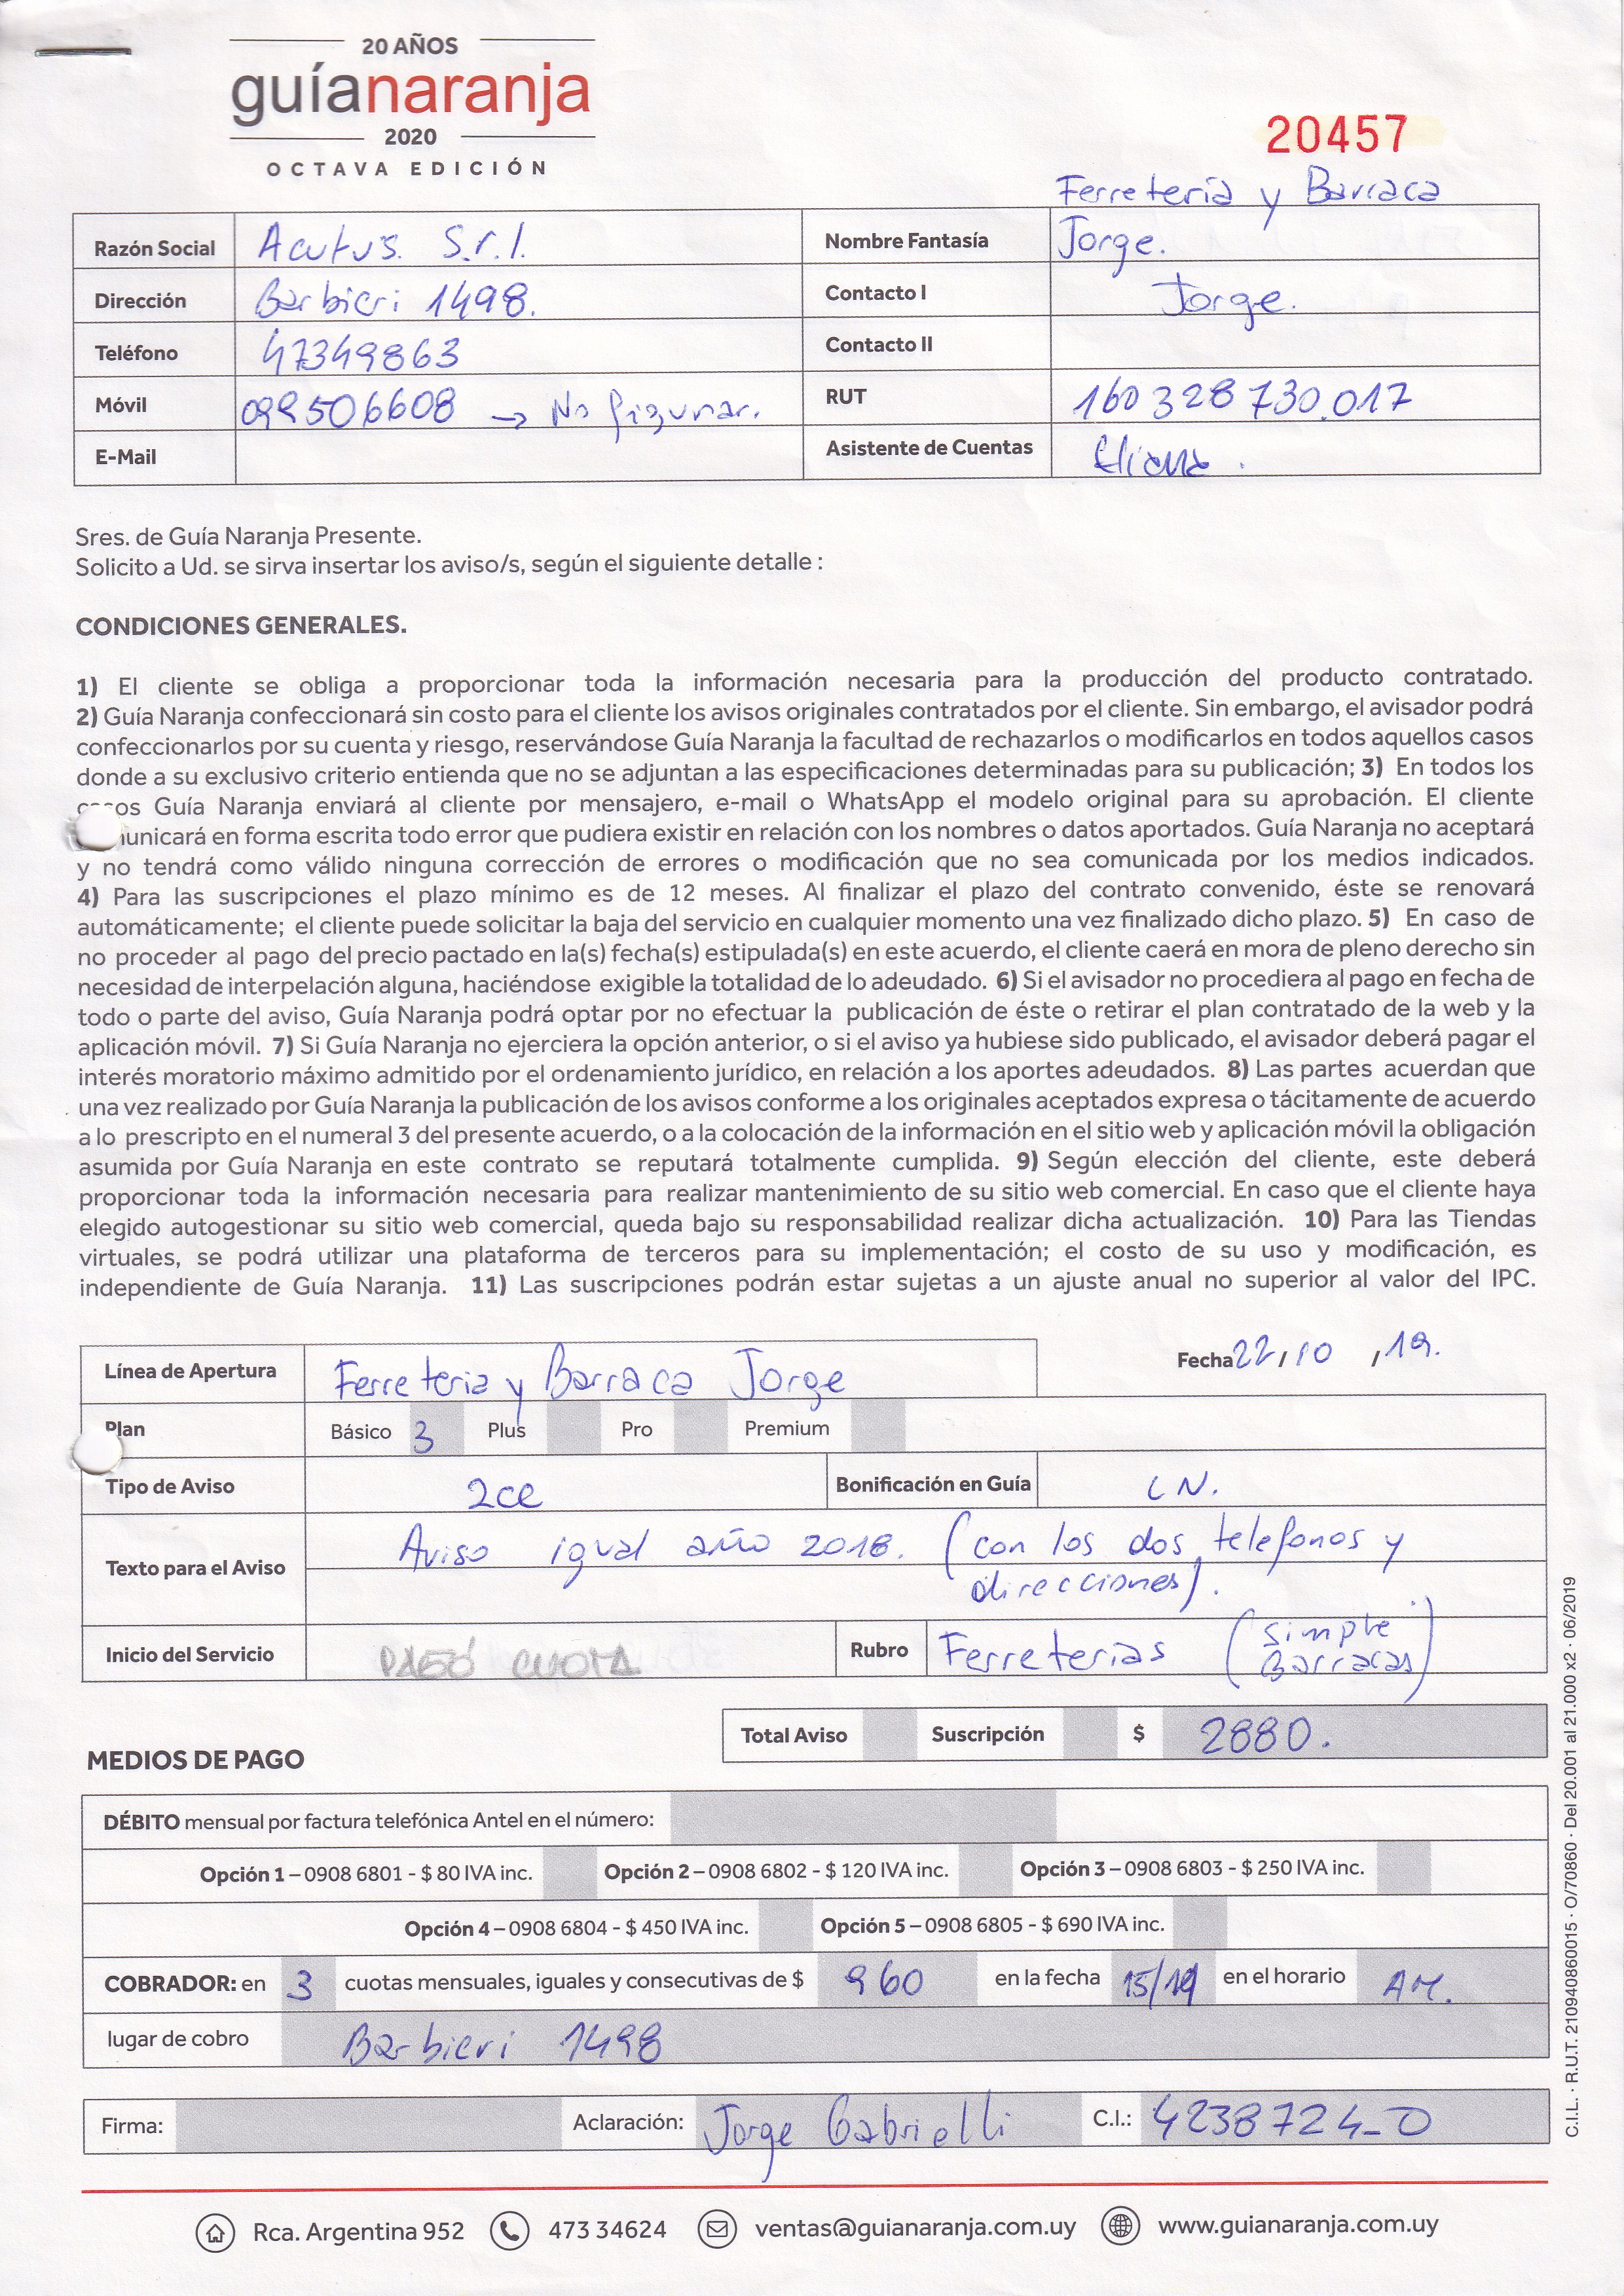 20 AÑOS
guíanaranja
2020
OCTAVA EDICIÓN
20457
Ferretería y Barraca
Razón Social Acutus. S.r.l. Nombre Fantasía Jorge.
Dirección Barbieri 1498. Contacto I Jorge.
Teléfono 47349863 Contacto II
Móvil 099506608 → No figurar. RUT 160328730.017
E-Mail Asistente de Cuentas Eliana.
Sres. de Guía Naranja Presente.
Solicito a Ud. se sirva insertar los aviso/s, según el siguiente detalle :
CONDICIONES GENERALES.
1) El cliente se obliga a proporcionar toda la información necesaria para la producción del producto contratado.
2) Guía Naranja confeccionará sin costo para el cliente los avisos originales contratados por el cliente. Sin embargo, el avisador podrá
confeccionarlos por su cuenta y riesgo, reservándose Guía Naranja la facultad de rechazarlos o modificarlos en todos aquellos casos
donde a su exclusivo criterio entienda que no se adjuntan a las especificaciones determinadas para su publicación; 3) En todos los
casos Guía Naranja enviará al cliente por mensajero, e-mail o WhatsApp el modelo original para su aprobación. El cliente
unicará en forma escrita todo error que pudiera existir en relación con los nombres o datos aportados. Guía Naranja no aceptará
y no tendrá como válido ninguna corrección de errores o modificación que no sea comunicada por los medios indicados.
4) Para las suscripciones el plazo mínimo es de 12 meses. Al finalizar el plazo del contrato convenido, éste se renovará
automáticamente; el cliente puede solicitar la baja del servicio en cualquier momento una vez finalizado dicho plazo. 5) En caso de
no proceder al pago del precio pactado en la(s) fecha(s) estipulada(s) en este acuerdo, el cliente caerá en mora de pleno derecho sin
necesidad de interpelación alguna, haciéndose exigible la totalidad de lo adeudado. 6) Si el avisador no procediera al pago en fecha de
todo o parte del aviso, Guía Naranja podrá optar por no efectuar la publicación de éste o retirar el plan contratado de la web y la
aplicación móvil. 7) Si Guía Naranja no ejerciera la opción anterior, o si el aviso ya hubiese sido publicado, el avisador deberá pagar el
interés moratorio máximo admitido por el ordenamiento jurídico, en relación a los aportes adeudados. 8) Las partes acuerdan que
una vez realizado por Guía Naranja la publicación de los avisos conforme a los originales aceptados expresa o tácitamente de acuerdo
a lo prescripto en el numeral 3 del presente acuerdo, o a la colocación de la información en el sitio web y aplicación móvil la obligación
asumida por Guía Naranja en este contrato se reputará totalmente cumplida. 9) Según elección del cliente, este deberá
proporcionar toda la información necesaria para realizar mantenimiento de su sitio web comercial. En caso que el cliente haya
elegido autogestionar su sitio web comercial, queda bajo su responsabilidad realizar dicha actualización. 10) Para las Tiendas
virtuales, se podrá utilizar una plataforma de terceros para su implementación; el costo de su uso y modificación, es
independiente de Guía Naranja. 11) Las suscripciones podrán estar sujetas a un ajuste anual no superior al valor del IPC.
Línea de Apertura Ferretería y Barraca Jorge Fecha 22/10/19.
Plan Básico 3 Plus Pro Premium
Tipo de Aviso 2ce Bonificación en Guía LN.
Texto para el Aviso Aviso igual año 2018. (con los dos telefonos y
direcciones).
Inicio del Servicio PASÓ CUOTA Rubro Ferreterias (simple
Barracas)
Total Aviso Suscripción $ 2880.
MEDIOS DE PAGO
DÉBITO mensual por factura telefónica Antel en el número:
Opción 1 – 0908 6801 - $ 80 IVA inc. Opción 2 – 0908 6802 - $ 120 IVA inc. Opción 3 – 0908 6803 - $ 250 IVA inc.
Opción 4 – 0908 6804 - $ 450 IVA inc. Opción 5 – 0908 6805 - $ 690 IVA inc.
COBRADOR: en 3 cuotas mensuales, iguales y consecutivas de $ 960 en la fecha 15/19 en el horario AM.
lugar de cobro Barbieri 1498
Firma: Aclaración: Jorge Gabrielli C.I.: 4238724-0
Rca. Argentina 952 473 34624 ventas@guianaranja.com.uy www.guianaranja.com.uy
C.I.L. · R.U.T. 210940860015 · O/70860 · Del 20.001 al 21.000 x2 · 06/2019